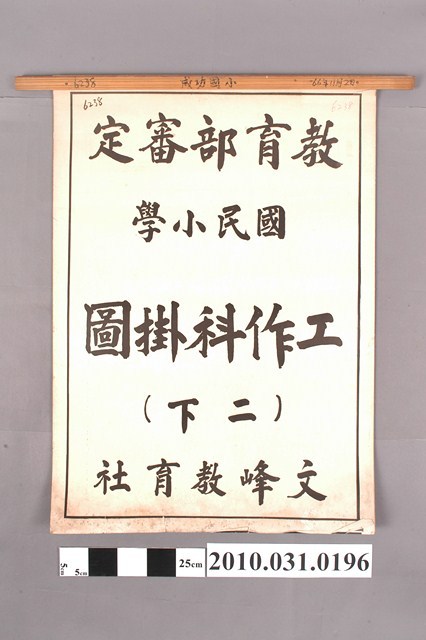 6238 成功國小 66年11月2日
6238 6238
教育部審定
國民小學
工作科掛圖
(二下)
文峰教育社
5cm 25cm
2010.031.0196